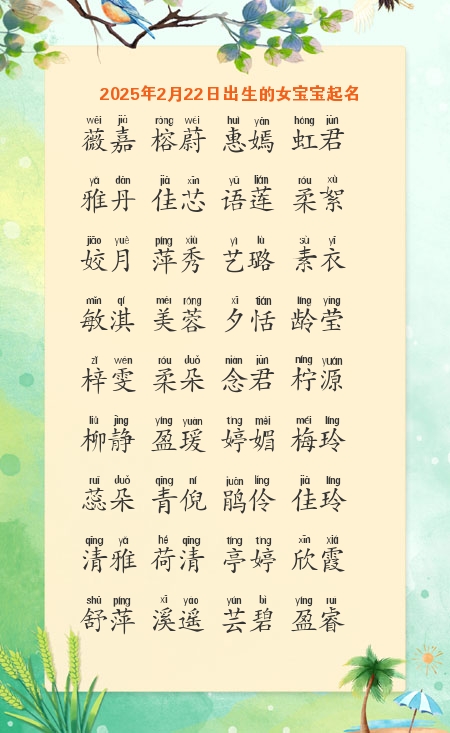 2025年2月22日出生的女宝宝起名
wēi jiā róng wèi huì yān hóng jūn
薇嘉 榕蔚 惠嫣 虹君
yǎ dān jiā xīn yǔ lián róu xù
雅丹 佳芯 语莲 柔絮
jiāo yuè píng xiù yì lù sù yī
姣月 萍秀 艺璐 素衣
mǐn qí měi róng xī tián líng yíng
敏淇 美蓉 夕恬 龄莹
zǐ wén róu duǒ niàn jūn níng yuán
梓雯 柔朵 念君 柠源
liǔ jìng yíng yuàn tíng mèi méi líng
柳静 盈瑗 婷媚 梅玲
ruǐ duǒ qīng ní juān líng jiā líng
蕊朵 青倪 鹃伶 佳玲
qīng yǎ hé qīng tíng tíng xīn xiá
清雅 荷清 亭婷 欣霞
shū píng xī yáo yún bì yíng ruì
舒萍 溪遥 芸碧 盈睿